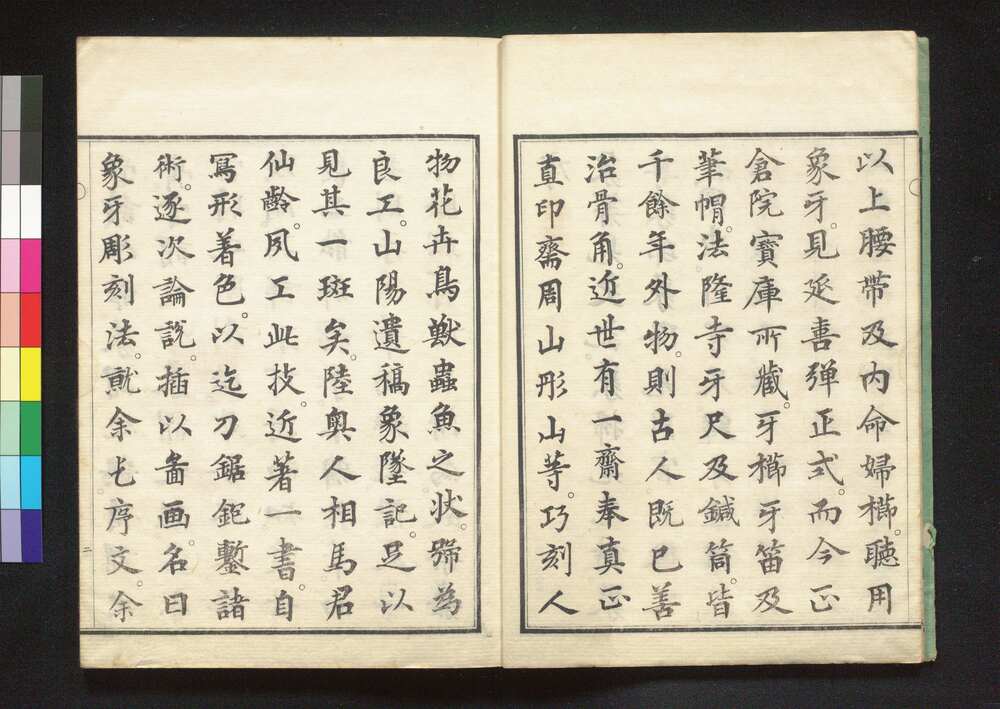 以上腰帶及内命婦櫛。聽用
象牙。見延喜弾正式。而今正
倉院寶庫所藏。牙櫛牙笛及
筆帽。法隆寺牙尺及鍼筒。皆
千餘年外物。則古人既已善
治骨角。近世有一齋奉真正
直印齋周山形山等。巧刻人
物花卉鳥獸蟲魚之状。號為
良工。山陽遺稿象墜記。足以
見其一斑矣。陸奥人相馬君
仙齡。夙工此技。近著一書。自
寫形着色。以迄刀鋸鉈鏨諸
術。逐次論說。插以畵画。名曰
象牙彫刻法。就余乞序文。余
二